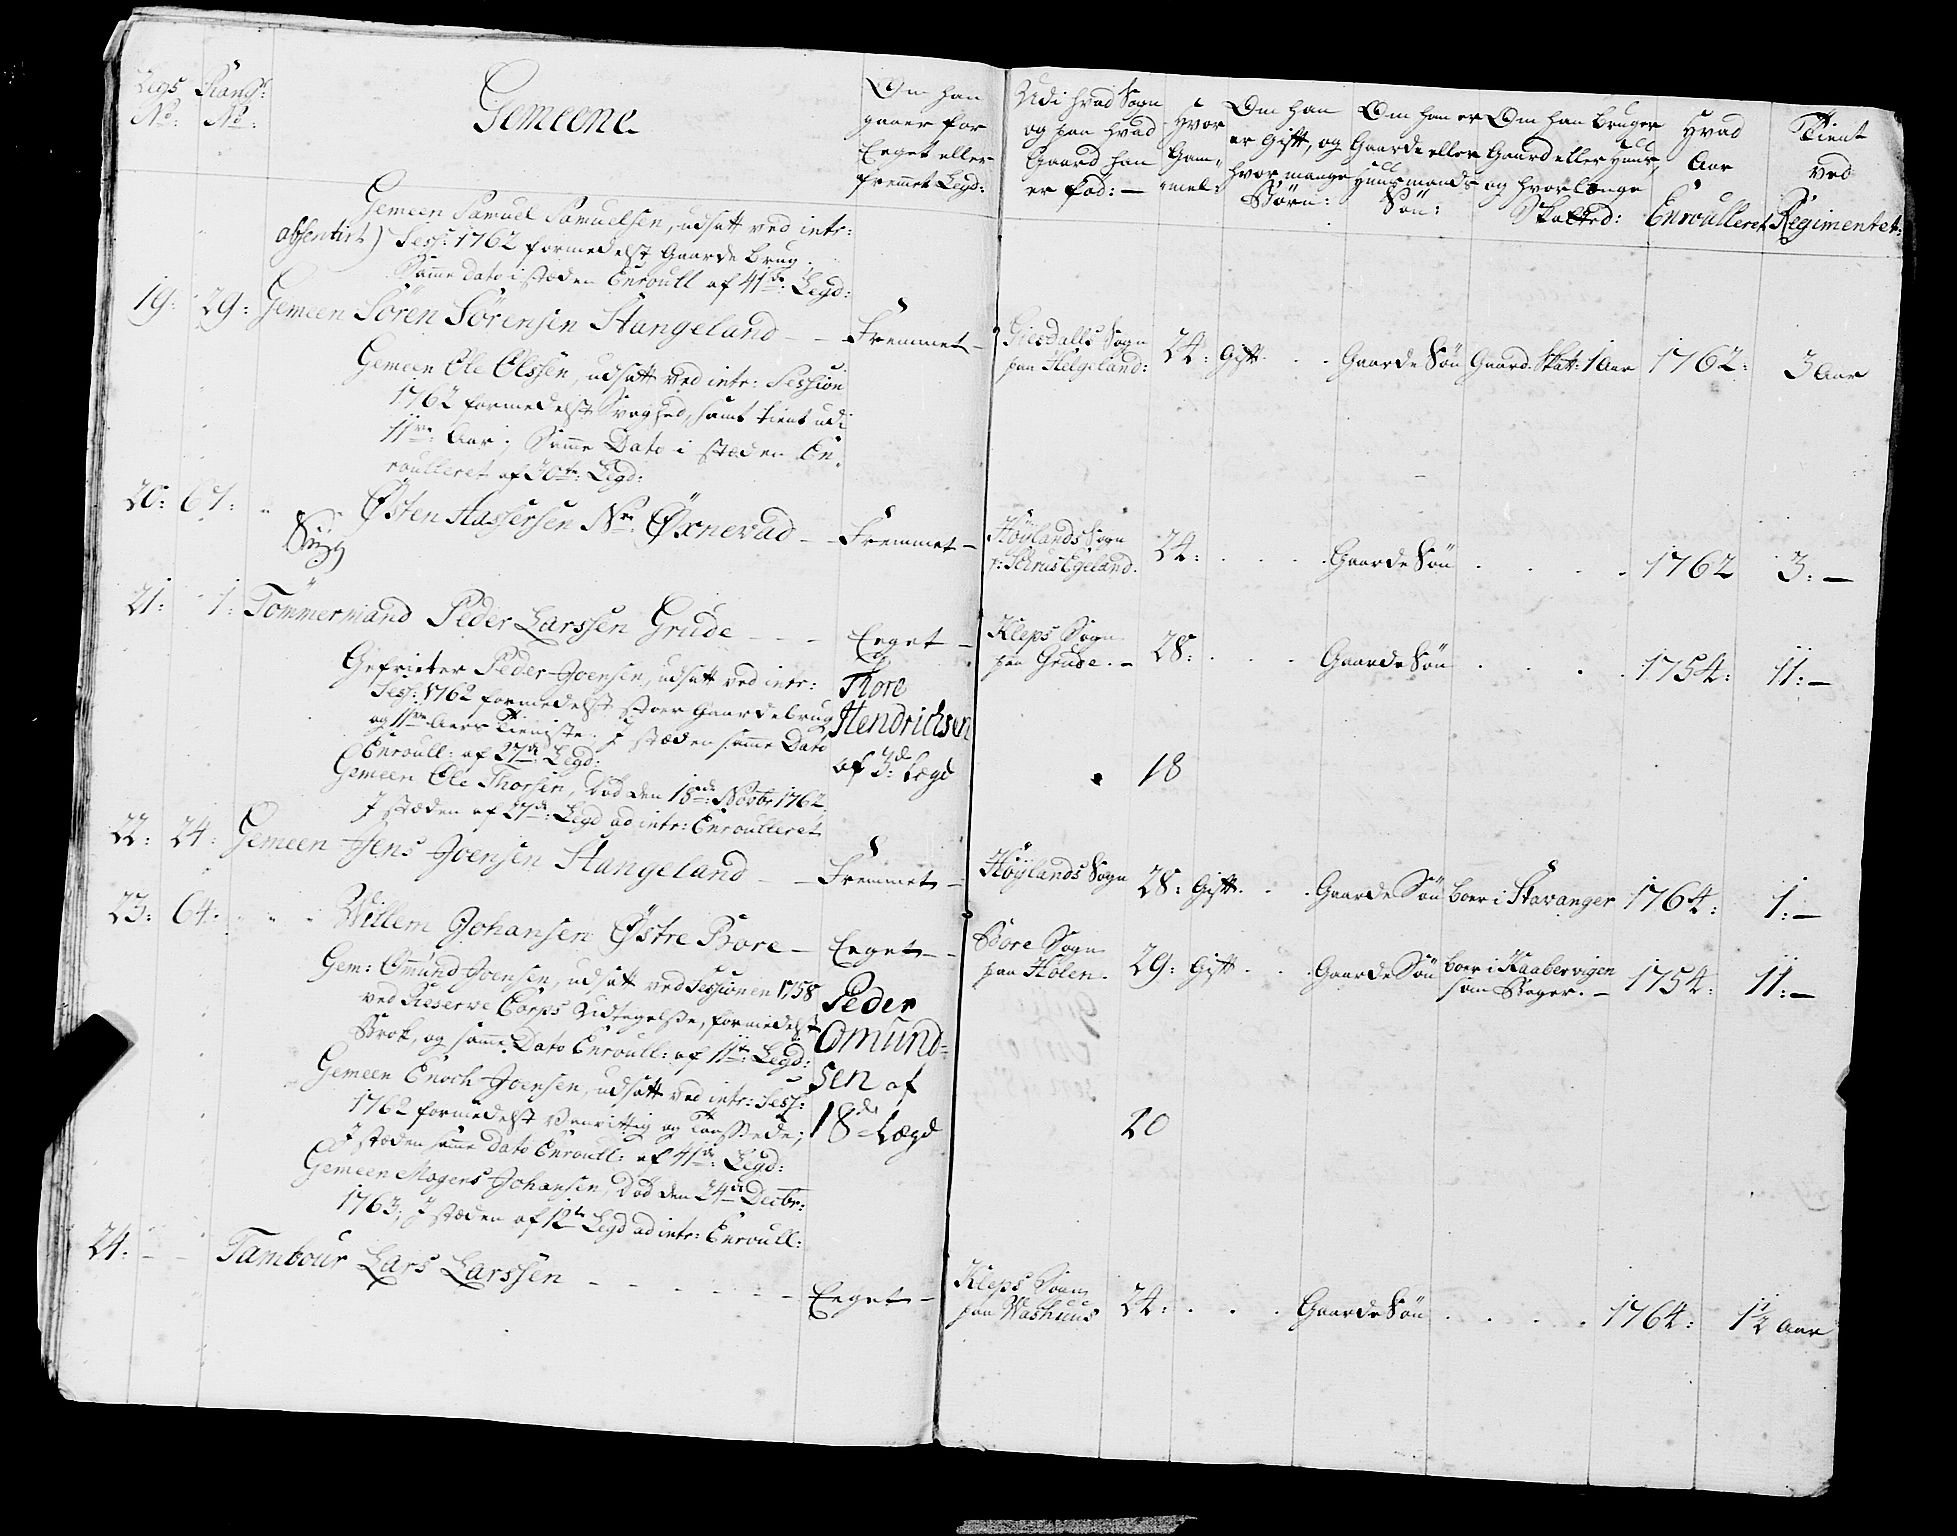 Legs No:
Rang: No:
Gemeene
Om han
gaaer for
Eeget eller
fremmet Legd:
Udi hvad Sogn
og paa hvad
Gaard han
er fød: —
Hvor
Gam„
mel:
Om han
er Gift, og
hvor mange
Børn:
Om han er
Gaarde eller
Huusmands
Søn:
Om han bruger
Gaard eller Huus,
og hvor længe
Skatted:
Hvad
Aar
Enroulleret
Tient
ved
Regimentet:
Gemeen Samuel Samuelsen, udsatt ved intr:
absentirt) Sess: 1762 formedelst Gaarde brug.
Samme dato i stæden Enroull af 41de: Legd:
19: 29: Gemeen Sören Sörensen Stangeland — — Fremmet — Giesdalls Sogn
paa Helgeland: 24: Gift. . . Gaarde Søn Gaard. Skatt: 1 Aar 1762: 3 Aar
Gemeen Ole Olssen, udsatt ved intr: Session
1762 formedelst Svaghed, samt tient udi
11ve: Aar; Samme Dato i stæden En„
roulleret af 30te: Legd:
20: 67: „ „ Østen Hassersen Nr: Øxnevad — Fremmet — Höylands Sogn
Egeland. 24: . . . Gaarde Søn . . . . 1762 3: —
Syg
21: 1: Tömmermand Peder Larssen Grude — — — Eeget — Kleps Sogn
paa Grude. — 28: . . . Gaarde Søn . . . 1754: 11: —
Gefrieter Peder Joensen, udsatt ved intr:
Sess: 1762 formedelst stoer Gaardebrug
og 11ve Aars Tieniste. I stæden samme Dato
Enroull: af 27de Legd:
Thore
Hendrichsen
af 3de: Lægd
18
Gemeen Ole Thorsen, Död den 18de: Novbr 1762,
I stæden af 27de: Legd ad intr: Enroulleret
22: 24: Gemeen Jens Joensen Stangeland — — Fremmet — Höylands Sogn 28: Gift. . . Gaarde Søn boer i Stavanger 1764: 1: —
23: 64: „ „ „ Willem Johansen Østre Bore — Eeget — Bore Sogn
paa Holen. 29: Gift. . . Gaarde Søn boer i Kaabervigen
som Bager. — 1754: 11: —
Gem: Omund Joensen, udsatt ved Sessionen 1758
ved Reserve Corps Udtegelse, formedelst
Brok, og samme Dato Enroull: af 11te: Legd:
Peder
Omund=
sen af
18de Lægd
20
Gemeen Enoch Joensen, udsatt ved intr: Sess:
1762 formedelst Vanvittig og Taassede;
I stæden samme dato Enroull: af 41de: Legd:
Gemeen Mogens Johansen, Död den 24de Decbr:
1763; I stæden af 12te Legd ad intr: Enroull:
24: — — Tambour Lars Larssen — — — — — — Eeget — Kleps Sogn
paa Washuus 24: . . . Gaarde Søn . . . . 1764: 1½ Aar